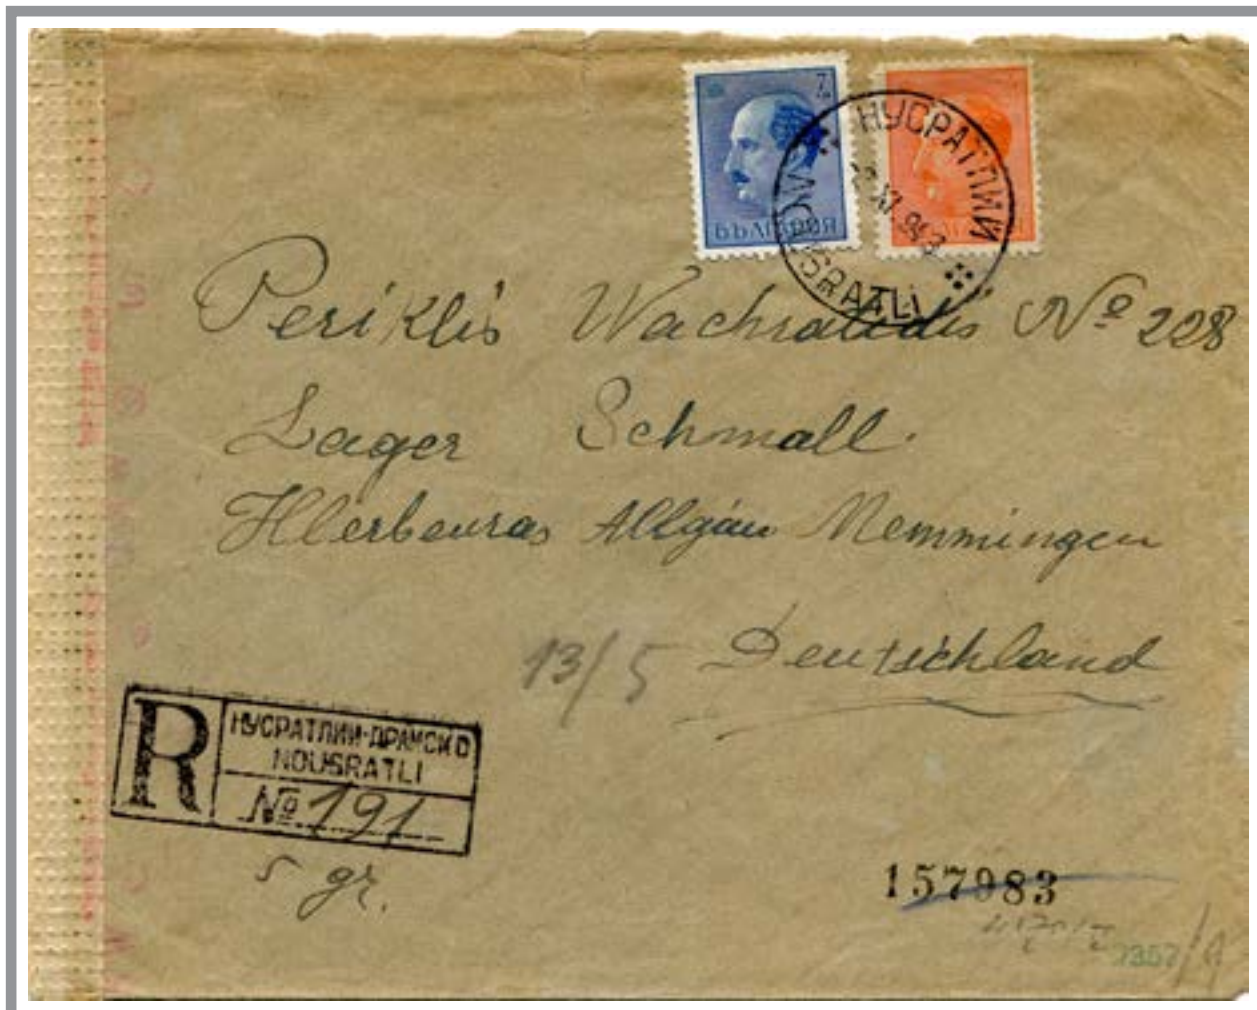 7
БЪЛГАРИЯ
НУСРАТЛИЙ
XI. 943
NOUSRATLI
Periklis Wachratidis Nº 228
Lager Schmall.
Allgäu Memmingen
13/5 Deutschland
R
НУСРАТЛИИ-ДРАМСКО
NOUSRATLI
Nº 191
5 gr.
157983